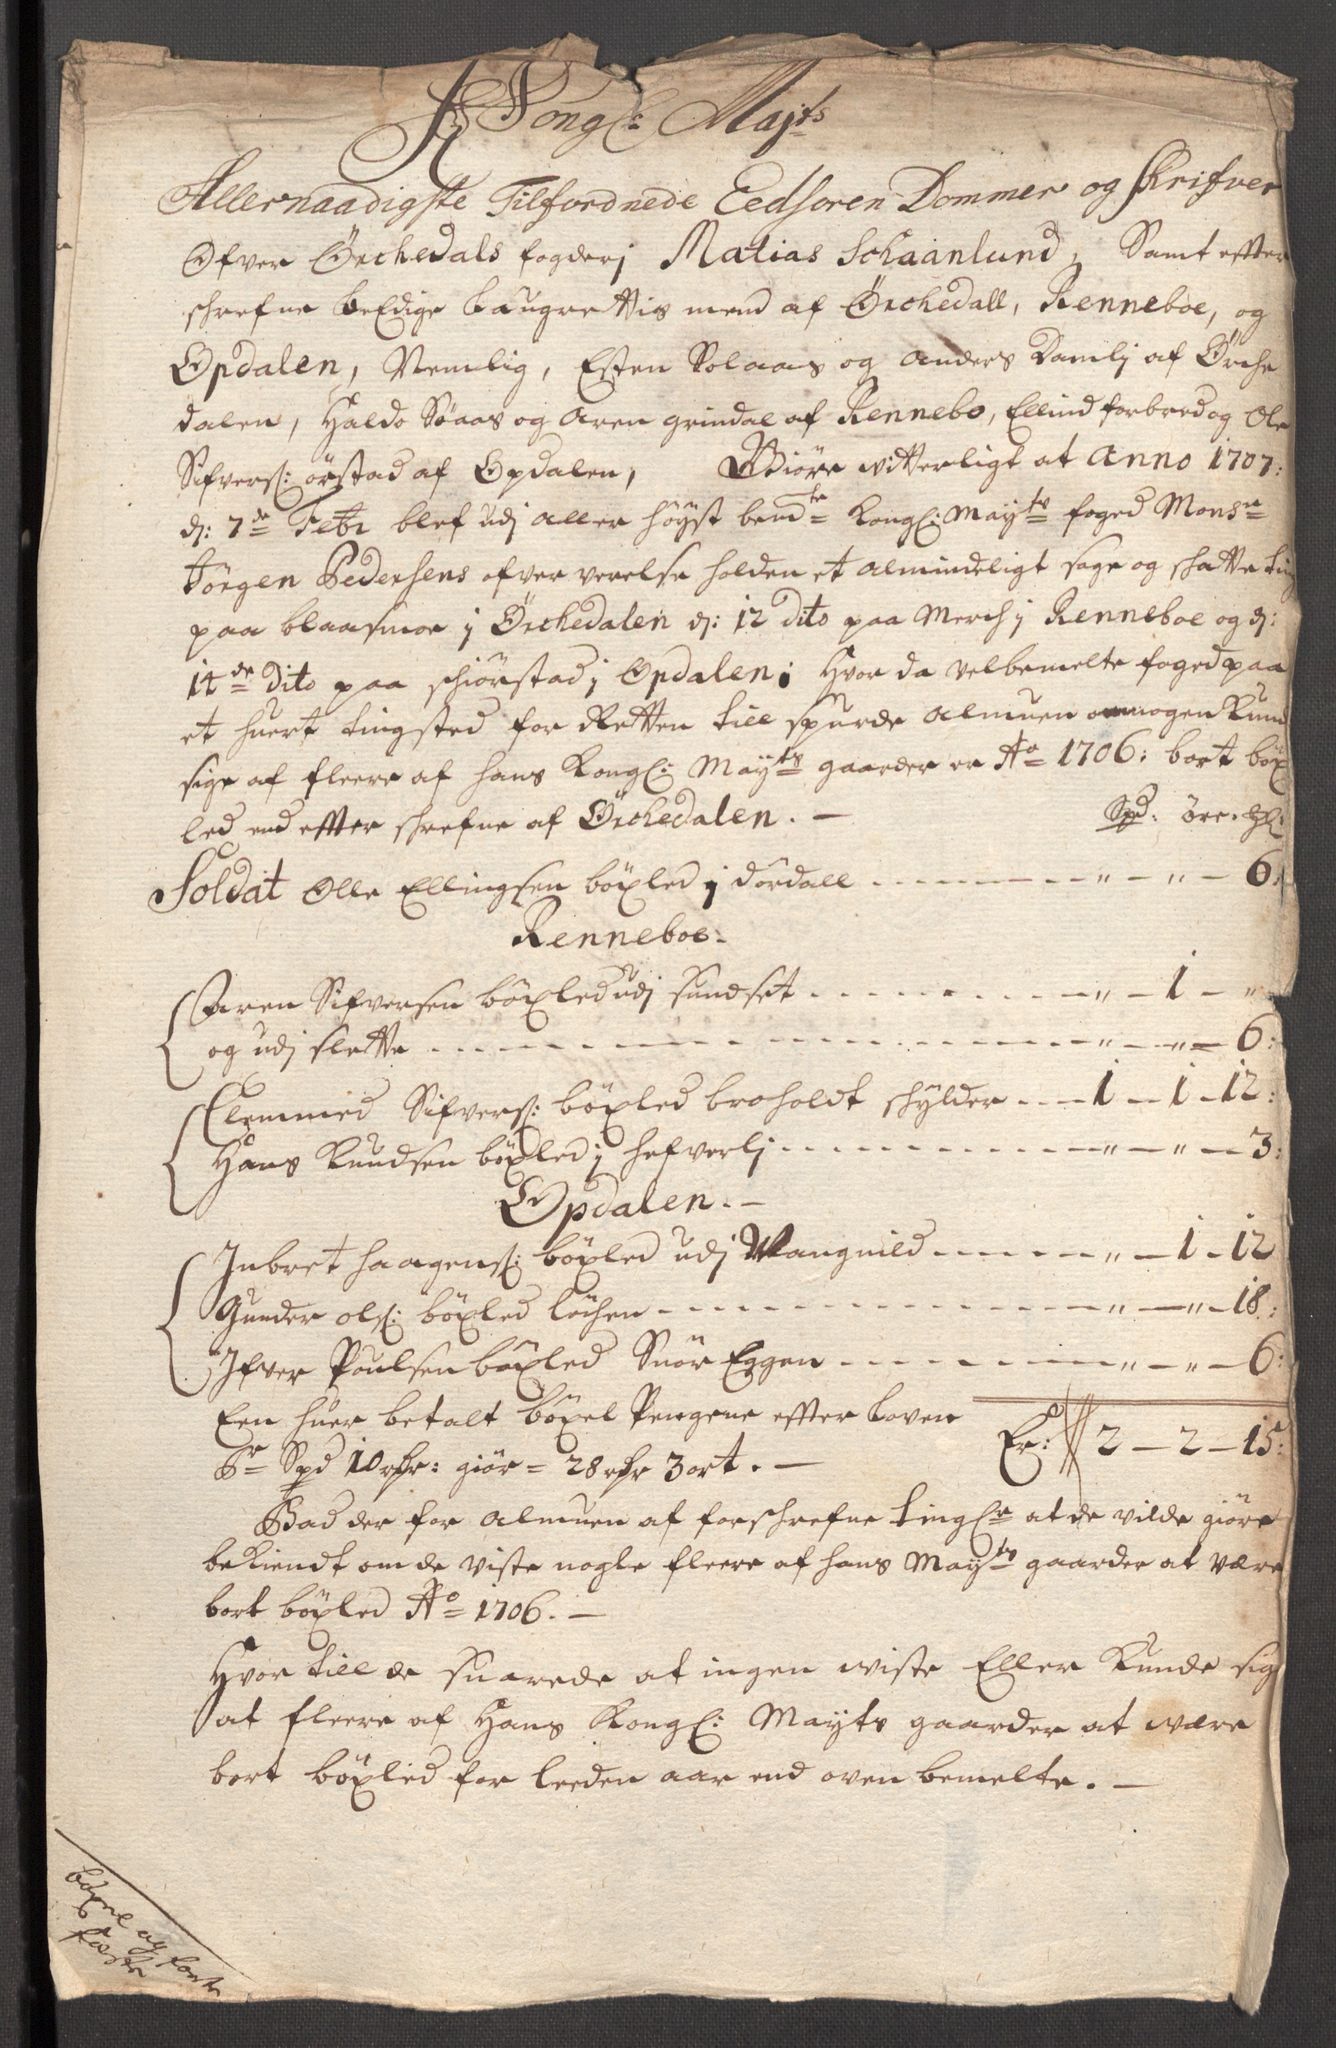 Kongl: Mayts
Allernaadigste Tilfordnede Eedsoren Dommer og Skrifver
Ofver Örchedals fogderj Matias Schaanlund, Samt effter
schrefne beEdige Laugrettis mend af Örchedall, Renneboe, og
Opdalen, Nemlig, Esten Solaas og Anders Damlj af Örche
dalen, Haldo Söaas og Aren grindal af Rennebo, Ellind forbred og Ole
Sifvers: örstad af Opdalen, Giöre witterligt at Anno 1707:
d: 7de Febr blef udj aller höyst bemte Kongl: Mayts foged Monsr
Jörgen Pedersens ofververelse holden et almindeligt sage og schatte ting
paa blaasmoe j Örchedalen d: 12 dito paa Merch j Renneboe og d:
14de dito paa schiörstad j Opdalen; Hvor da velbemelte foged paa
et huert tingsted for Retten till spurde Almuen om nogen Kund
sige af fleere af hans Kongl: Mayts gaarder er Ao 1706: bort böx
led end effter schrefne af Örchedalen. — Spd: öre. ml:
Soldat Olle Ellingsen böxled j dördall - - - „ - „ - 6:
Renneboe:
Aren Sifversen böxled udj sundset - - - „ - 1 - „
og udj slette - - - „ - „ - 6:
Clemmed Sifvers: böxled broholdt schylder - - - 1 - 1 - 12:
Hans Knudsen böxled j hefverlj - - - „ - „ - 3:
Opdalen. -
Inbret Haagens: böxled udj Wangnild - - - „ - 1 - 12
Gunder ols: böxled löchen - - - „ - „ - 18:
Ifver Poulsen böxled Snör Eggen - - - „ - „ - 6:
Een huer betalt böxel Pengene effter Loven Er: 2 - 2 - 15:
Pr Spd 10 rdr: giör = 28 rdr 3 ort. —
Bad der for almuen af forschrefne tingl: at de vilde giöre
beKiendt om de viste nogle fleere af hans Mayts gaarder at være
bort böxled Ao 1706. —
Hvor till de suarede at ingen wiste Eller Kunde sig
at fleere af Hans Kongl: Mayts gaarder at være
bort böxled for leeden aar end oven bemelte. —
böxel og förste
fæste